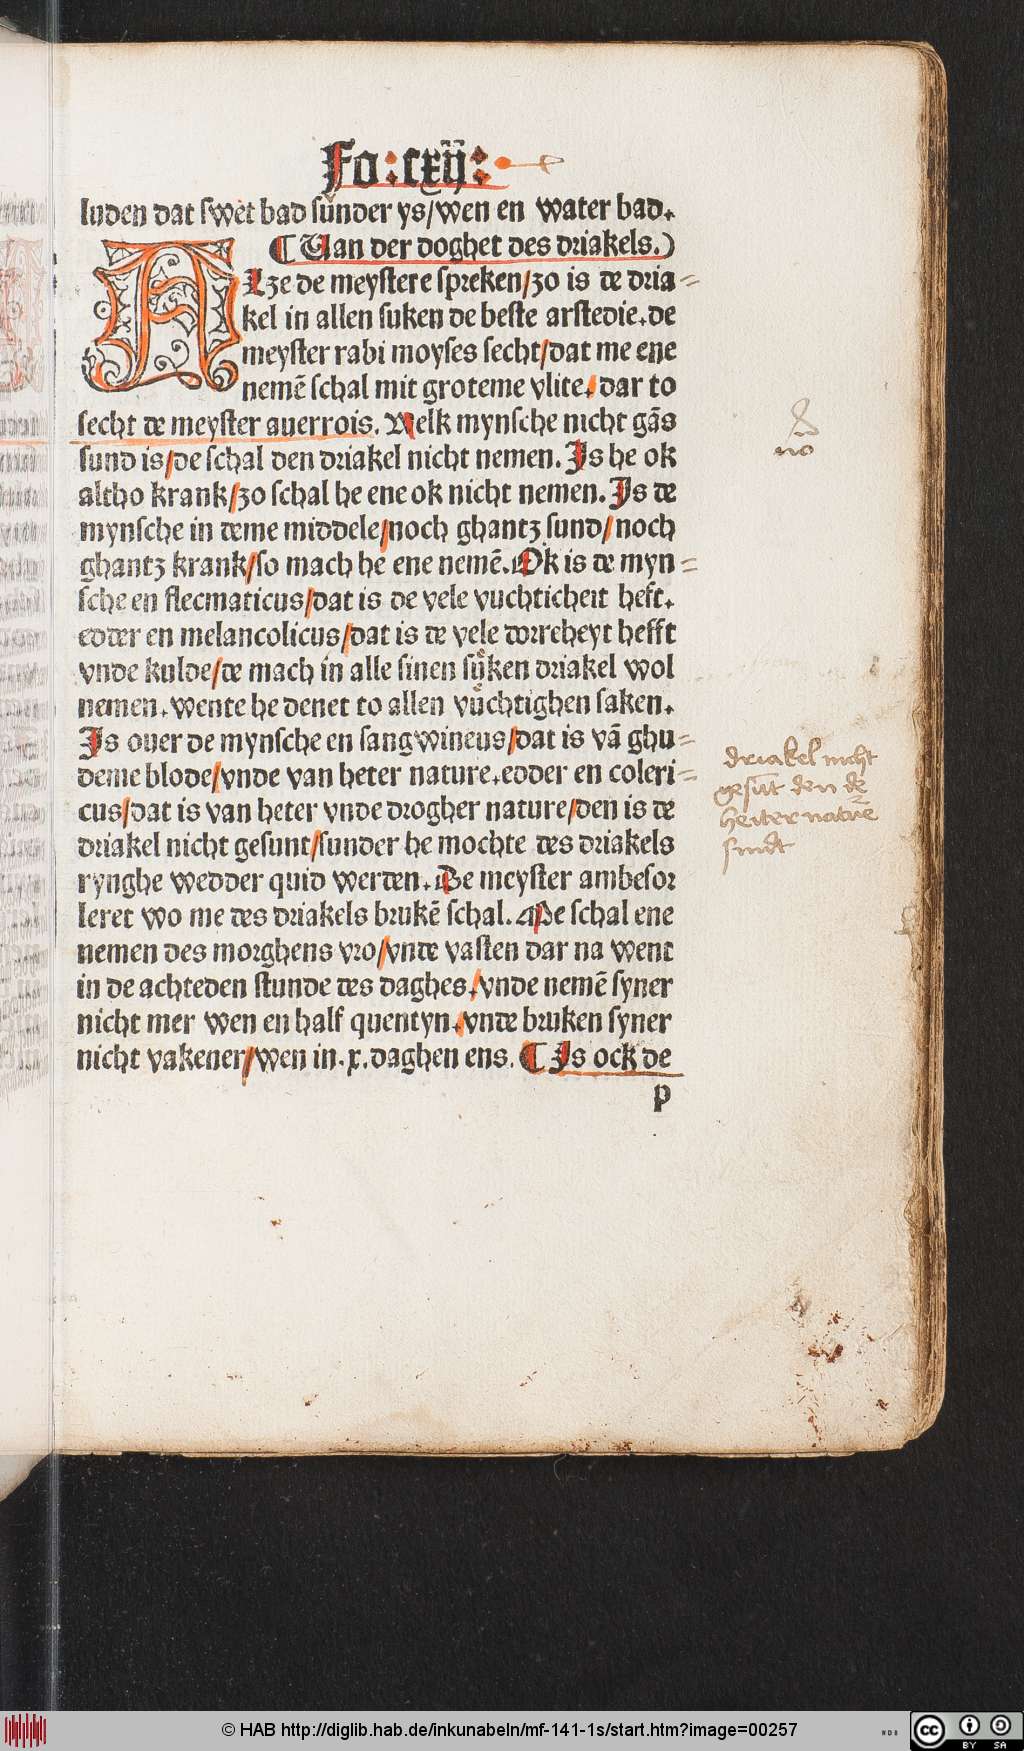 Fo:cxij:
luden dat swet bad sunder ys/wen en water bad.
¶ Uan der doghet des driakels.)
Alze de meystere spreken/zo is de dria-
kel in allen suken de beste arstedie.de
meyster rabi moyses secht/dat me ene
nemē schal mit groteme vlite. dar to
secht de meyster auerrois. Welk mynsche nicht gās
sund is/de schal den driakel nicht nemen. Is he ok
altho krank/zo schal he ene ok nicht nemen. Is de
mynsche in deme middele/noch ghantz sund/noch
ghantz krank/so mach he ene nemē. Ok is de myn-
sche en flecmaticus/dat is de vele vuchticheit heft.
edder en melancolicus/dat is de vele dorreheyt hefft
vnde kulde/de mach in alle sinen sůken driakel wol
nemen.wente he denet to allen vůchtighen saken.
Is ouer de mynsche en sangwineus/dat is vā ghu-
deme blode/vnde van heter nature.edder en coleri-
cus/dat is van heter vnde drogher nature/den is de
driakel nicht gesunt/sunder he mochte des driakels
rynghe wedder quid werden. De meyster ambesor
leret wo me des driakels brukē schal. Me schal ene
nemen des morghens vro/vnde vasten dar na went
in de achteden stunde des daghes/vnde nemē syner
nicht mer wen en half quentyn.vnde bruken syner
nicht vakener/wen in.x.daghen ens. ¶ Is ock de
p
no
driakel nicht
gesūt den de
heiter natuē
sindt
© HAB http://diglib.hab.de/inkunabeln/mf-141-1s/start.htm?image=00257
WDB
cc BY SA